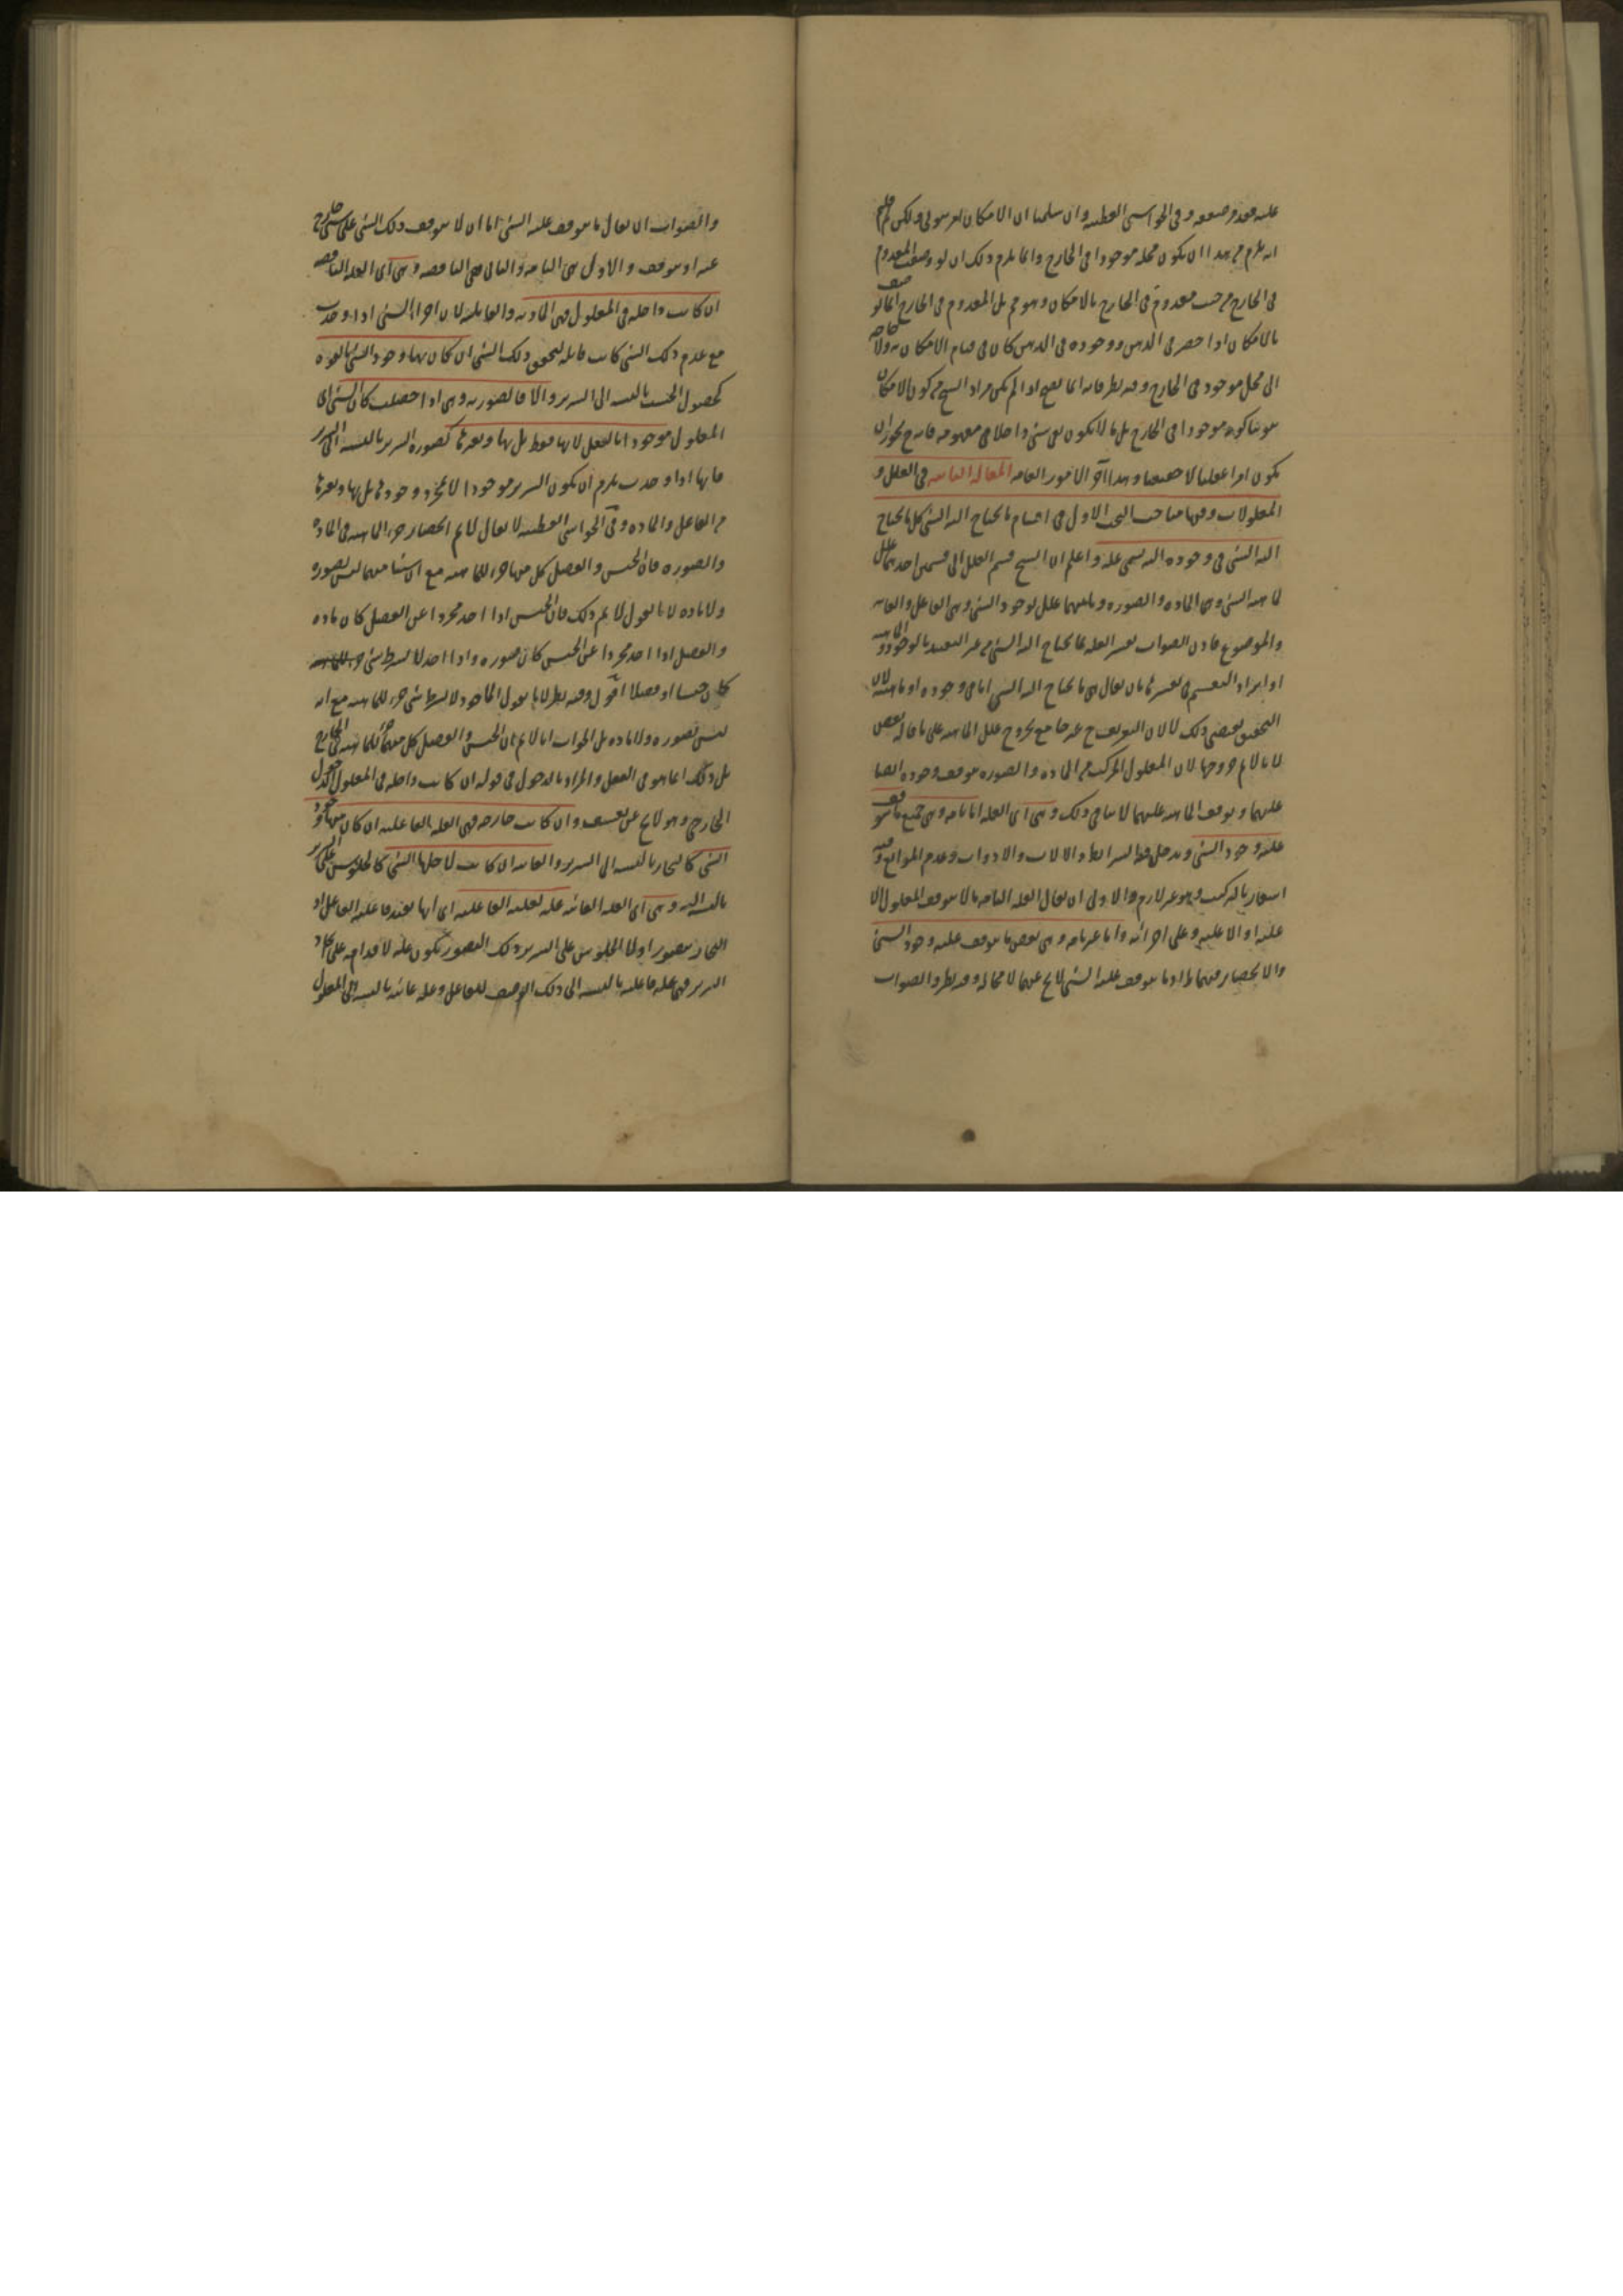 عليه فقد مر ضعفه وفي الحواشي القطبية وان سلمنا ان الامكان امر ثبوتي ولكن لم قلتم
انه يلزم من هذا ان يكون محله موجودا في الخارج وانما يلزم ذلك ان لو وصف المعدوم
في الخارج من حيث هو معدوم في الخارج بالامكان وهو مم بل المعدوم في الخارج انما يوصف
بالامكان اذا حضر في الذهن ووجوده في الذهن كان في قيام الامكان به ولا حاجة
الى محل موجود في الخارج وفيه نظر فانه انما يصح اذا لم يكن مراد الشيخ من كون الامكان
ثبوتيا كونه موجودا في الخارج بل ما لا يكون نفي شيء داخلا في مفهومه فانه ح يجوز ان
يكون امرا عقليا لا حقيقيا وهذا آخر الامور العامة المقالة الثانية في العلل و
المعلولات وفيها مباحث البحث الاول في اقسام ما يحتاج اليه الشيء كل ما يحتاج
اليه الشيء في وجوده اليه يسمى علة واعلم ان الشيخ قسم العلل الى قسمين احدهما علل
لماهية الشيء وهي المادة والصورة وثانيهما علل لوجود الشيء وهي الفاعل والغاية
والموضوع فاذن الصواب تفسير العلة بما يحتاج اليه الشيء من غير التقييد بالوجود والماهية
او ايراد التقسيم في تفسيرها بان يقال هي ما يحتاج اليه الشيء اما في وجوده او ماهيته لان
التحقيق يقتضي ذلك لا لان التعريف ح غير جامع بخروج علل الماهية على ما قاله بعض
لانا لا نم خروجها لان المعلول المركب من المادة والصورة يتوقف وجوده ايضا
عليهما وتوقف الماهية عليهما لا ينافي ذلك وهي اي العلة اما تامة وهي جميع ما يتوقف
عليه وجود الشيء ويدخل فيها الشرائط والالات والادوات وعدم الموانع وفيه
اشعار بالتركيب وهو غير لازم والاولى ان يقال العلة التامة ما لا يتوقف المعلول الا
عليه او الا عليه وعلى اجزائه واما غير تامة وهي بعض ما يتوقف عليه وجود الشيء
والانحصار فيهما ما يتوقف عليه الشيء لا يخ عنهما لا محالة وفيه نظر والصواب
والصواب ان يقال ما يتوقف عليه الشيء اما ان لا يتوقف ذلك الشيء على شيء خارج
عنه او يتوقف والاول هي التامة والثاني هي الناقصة وهي اي العلة الناقصة
ان كانت داخلة في المعلول فهي المادية والقابلة لان اجزاء الشيء اذا وجدت
مع عدم ذلك الشيء كانت قابلة لتحقق ذلك الشيء ان كان بها وجود الشيء بالقوة
كحصول الخشب بالنسبة الى السرير والا فالصورية وهي اذا حصلت كان الشيء اي
المعلول موجودا بالفعل لا بها فقط بل بها وبغيرها كصورة السرير بالنسبة الى السرير
فانها اذا وجدت يلزم ان يكون السرير موجودا لا لمجرد وجودها بل بها وبغيرها
من الفاعل والمادة وفي الحواشي القطبية لا يقال لا نم انحصار جزء الماهية في المادة
والصورة فان الجنس والفصل كل منهما جزء للماهية مع ان شيئا منهما ليس بصورة
ولا مادة لانا نقول لا نم ذلك فان الجنس اذا اخذ مجردا عن الفصل كان مادة
والفصل اذا اخذ مجردا عن الجنس كان صورة واذا اخذ لا بشرط شيء
كان جنسا او فصلا اقول وفيه نظر لانا نقول الماخوذ لا بشرط شيء جزء للماهية مع انه
ليس بصورة ولا مادة بل الجواب انا لا نم ان الجنس والفصل كل منهما جزء للماهية في الخارج
بل ذلك انما هو في العقل والمراد بالدخول في قوله ان كانت داخلة في المعلول الدخول
الخارجي وهو لا يخ عن تعسف وان كانت خارجة فهي العلة الفاعلية ان كان منها وجود
الشيء كالنجار بالنسبة الى السرير والغائية ان كانت لاجلها الشيء كالجلوس على السرير
بالنسبة اليه وهي اي العلة الغائية علة لعلية الفاعلية اي انها تفيد فاعلية الفاعل اذ
النجار يتصور اولا الجلوس على السرير وذلك التصور يكون علة لاقدامه على ايجاد
السرير فهي علة فاعلية بالنسبة الى ذلك الوصف للفاعل وعلة غائية بالنسبة الى المعلول